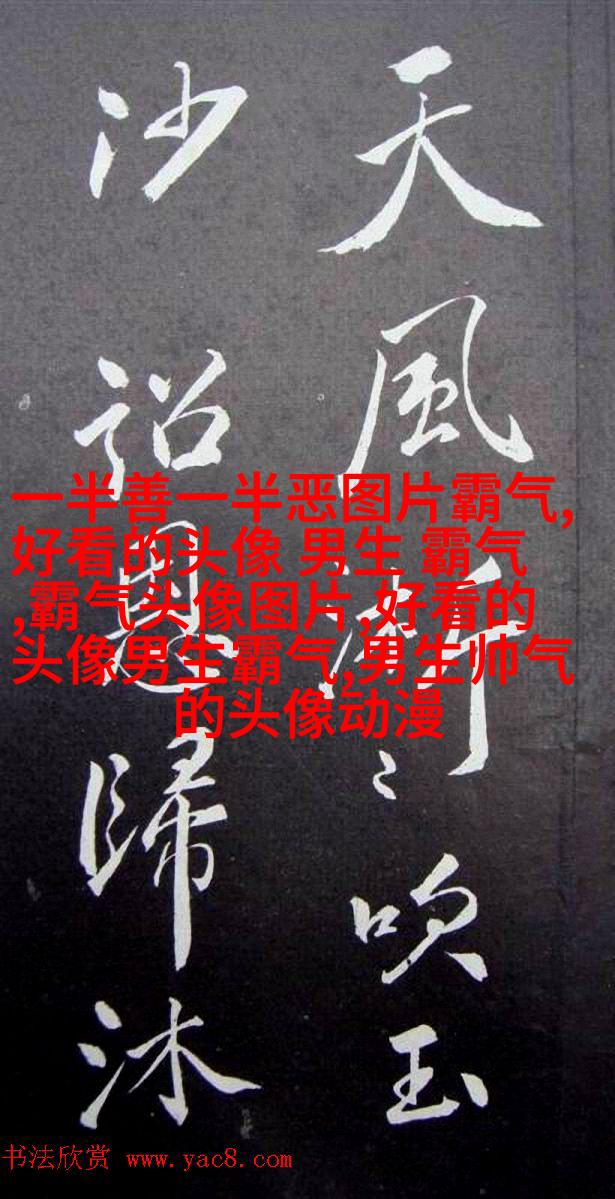 天風淅〻吹玉
沙詔恩歸沐
一半善一半恶图片霸气,
好看的头像 男生 霸气
,霸气头像图片,好看的
头像男生霸气,男生帅气
的头像动漫
书法欣赏 www.yac8.com